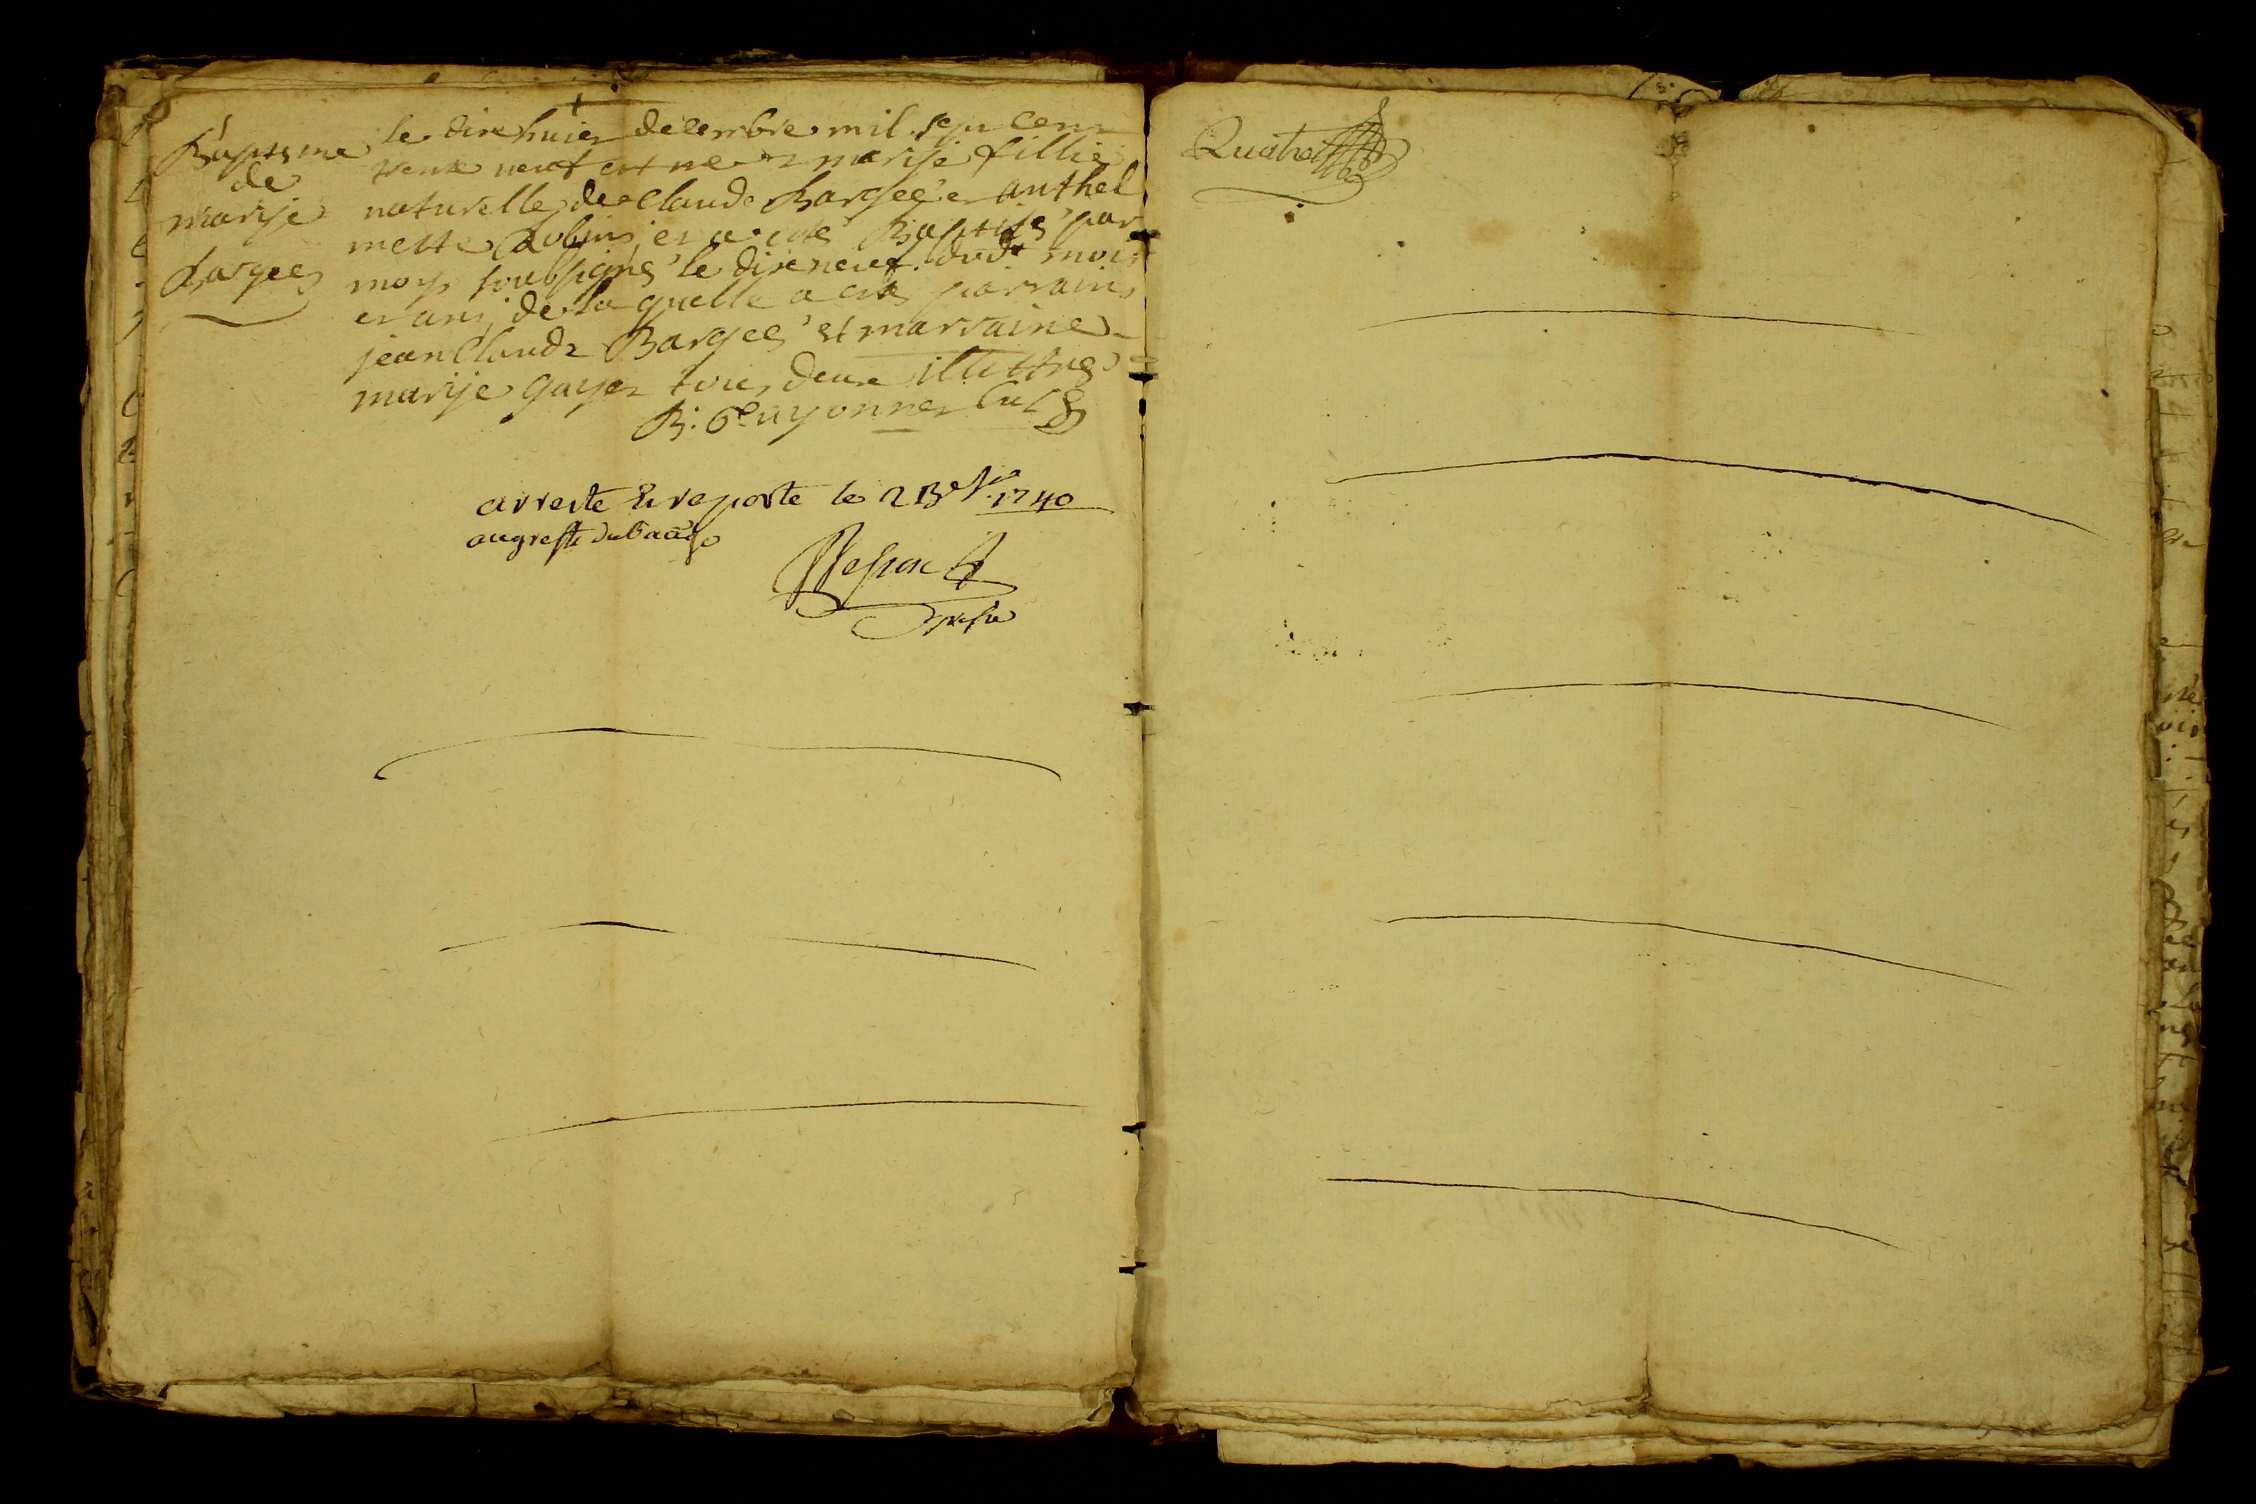 Baptisme
de
marije
Bargeé
le dixhuict decembre mil sept cent
trente neuf est née marije fillie
naturelle de Claude Bargeé et anthel
mette Robin, et a eté Baptisé par
moy soubsigné le dixneuf dudt mois
et an, de laquelle a eté parrain
jean Claude Bargeé et marraine
marije gayet tous deux illettrés
B. Guyonnet Curé
arresté Et reporté le 2 1740
au greffe du
Quatre